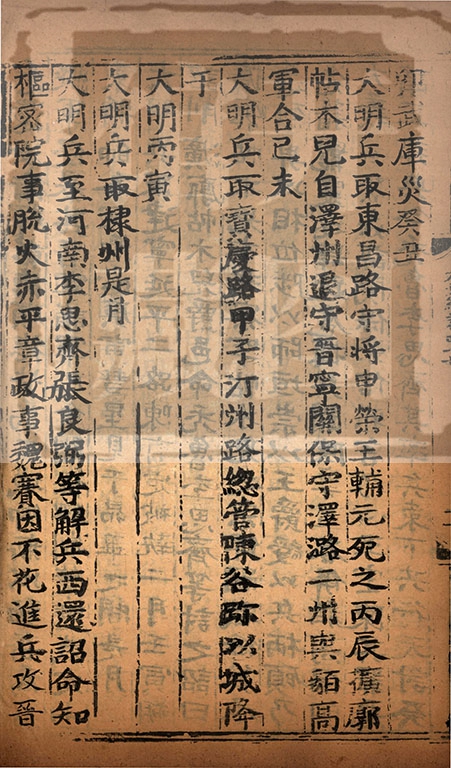 卯武庫災癸丑
大明兵取東昌路守将申榮王輔元死之丙辰擴廓
帖木兒自澤州退守晉寧關保守澤潞二州與貊高
軍合己未
大明兵取寶慶路甲子汀州路緫管陳谷珎以城降
于
大明丙寅
大明兵取棣州是月
大明兵至河南李思齊張良弼等解兵西還詔命知
樞宻院事脱火赤平章政事魏賽因不花進兵攻晉